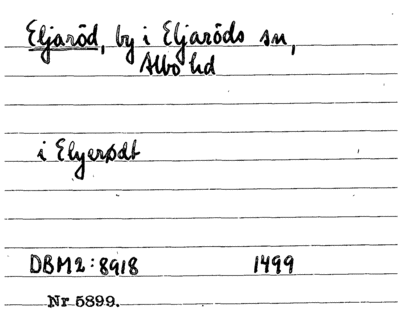 Eljaröd, by i Eljaröds sn,
Albo hd
i Elyerødt
DBM2:8918 1499
Nr 5899.